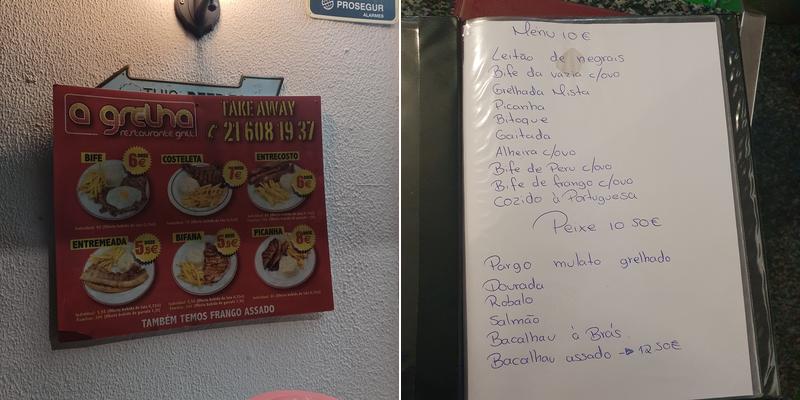 PROSEGUR
ALARMES
a grelha
restaurante grill
TAKE AWAY
21 608 19 37
BIFE
6€
COSTELETA
7€
ENTRECOSTO
6€
ENTREMEADA
5,5€
BIFANA
5,5€
PICANHA
8€
TAMBÉM TEMOS FRANGO ASSADO
Menu 10€
Leitão de negrais
Bife da vazia c/ovo
Grelhada Mista
Picanha
Bitoque
Gaitada
Alheira c/ovo
Bife de Peru c/ovo
Bife de frango c/ovo
Cozido à Portuguesa
Peixe 10 50€
Pargo mulato grelhado
Dourada
Robalo
Salmão
Bacalhau à Brás
Bacalhau assado → 12 50€